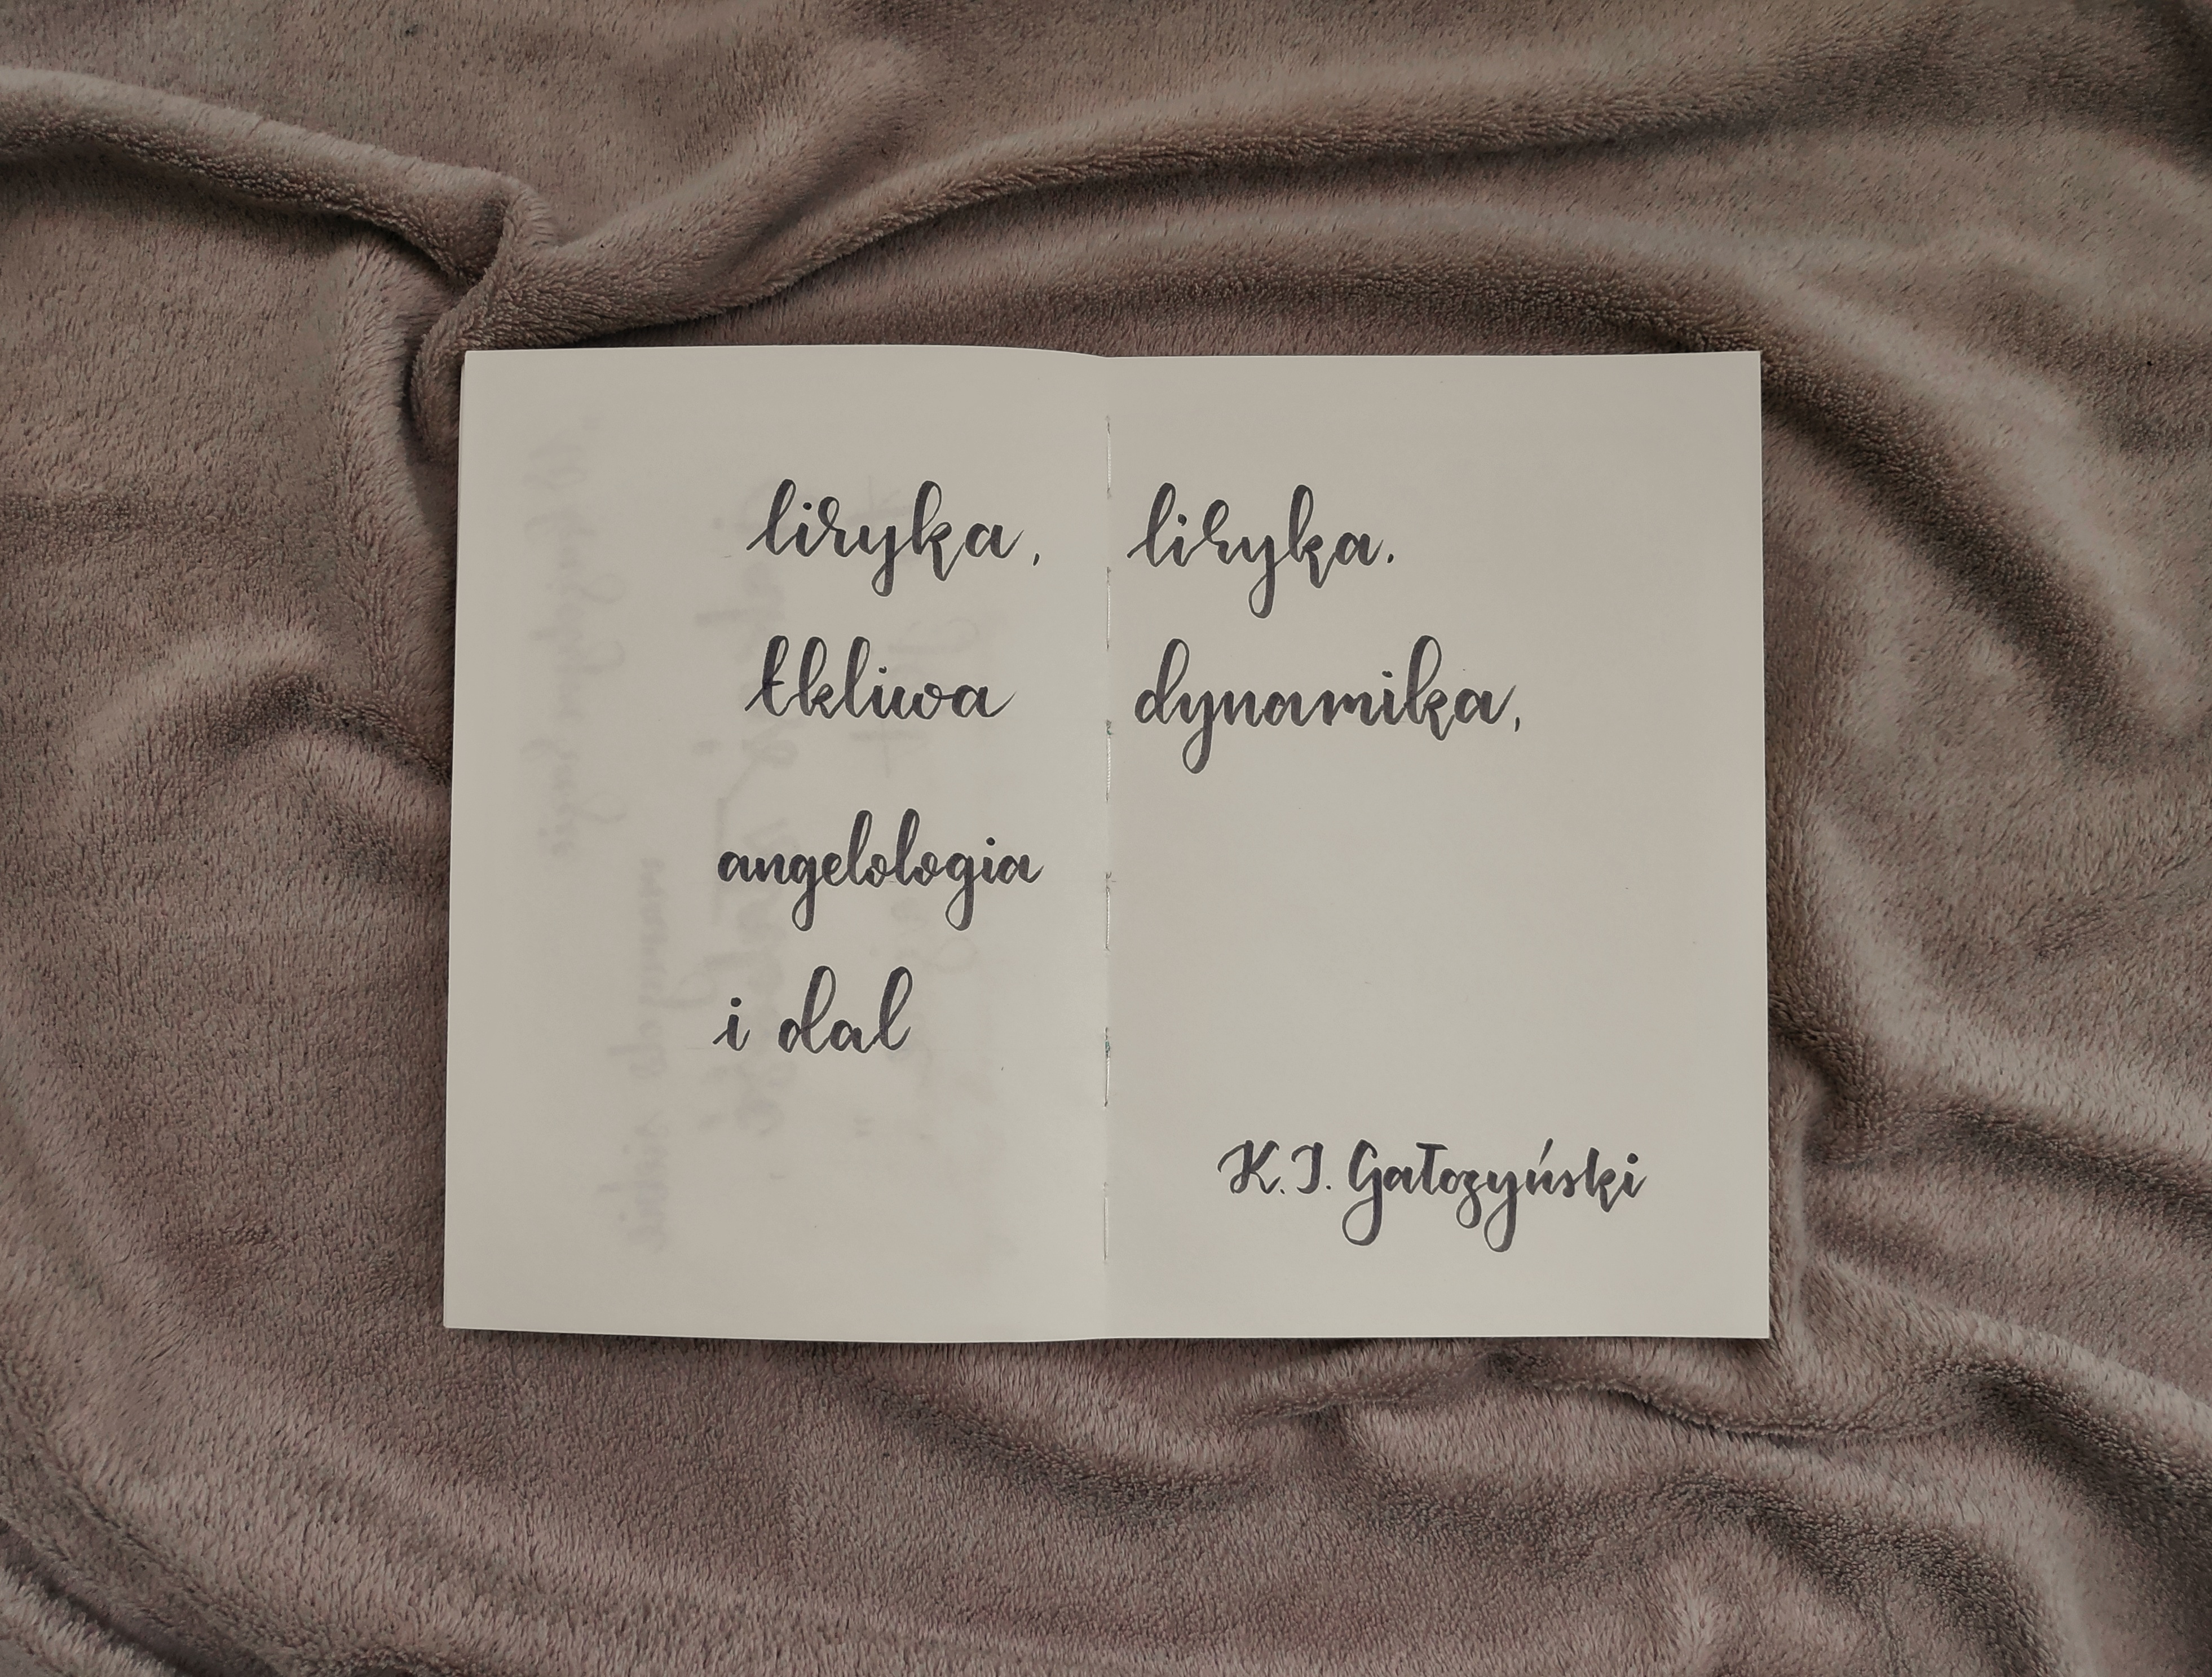 liryka, liryka.
tkliwa dynamika,
angelologia
i dal
K.I. Gałczyński